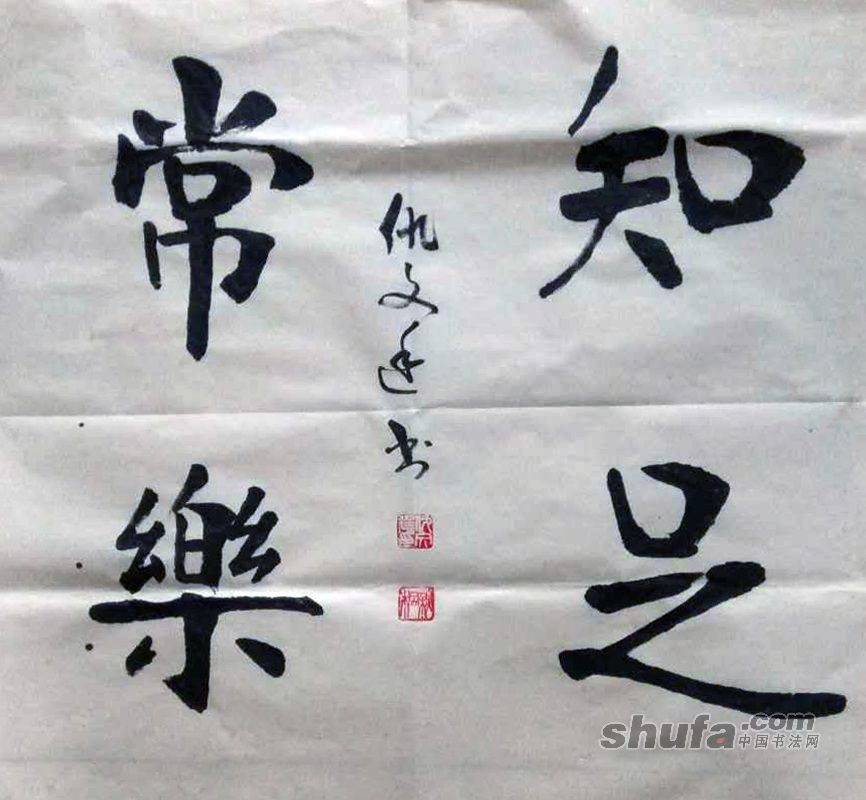 知足
常樂
仇文廷书
shufa.com
中国书法网